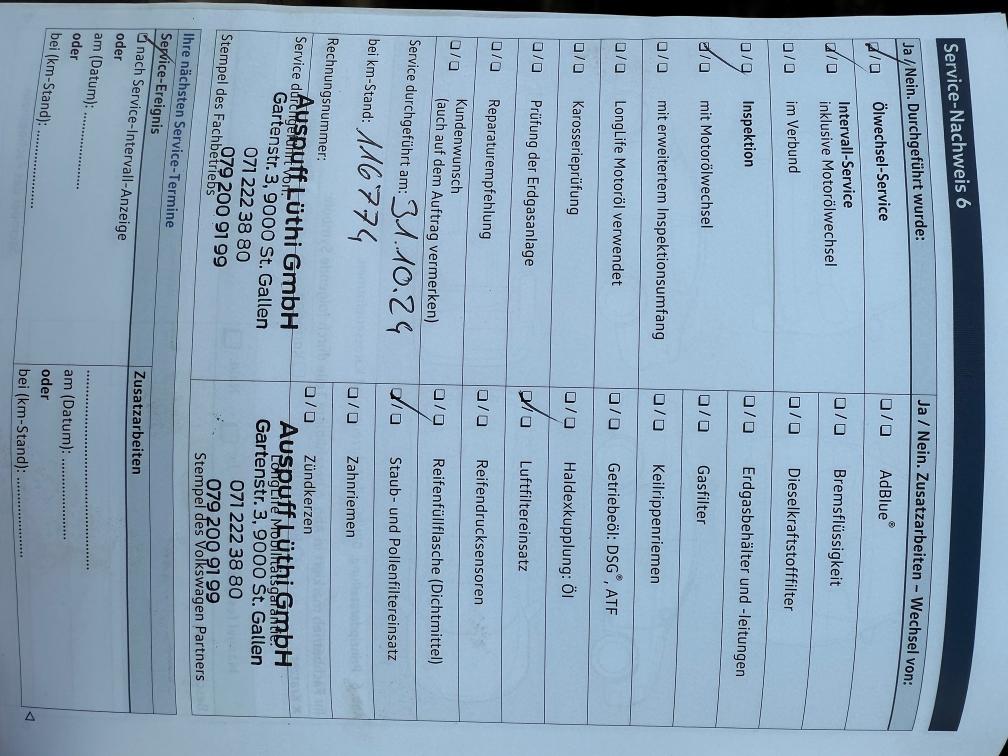 Service-Nachweis 6
Ja / Nein. Durchgeführt wurde:
☑ / ☐ Ölwechsel-Service
☑ / ☐ Intervall-Service
inklusive Motorölwechsel
☐ / ☐ im Verbund
☑ / ☐ Inspektion
☑ / ☐ mit Motorölwechsel
☐ / ☐ mit erweitertem Inspektionsumfang
☐ / ☐ LongLife Motoröl verwendet
☐ / ☐ Karosserieprüfung
☐ / ☐ Prüfung der Erdgasanlage
☐ / ☐ Reparaturempfehlung
☐ / ☐ Kundenwunsch
(auch auf dem Auftrag vermerken)
Service durchgeführt am: 31.10.24
bei km-Stand: 116774
Rechnungsnummer:
Service durchgeführt von:
Auspuff Lüthi GmbH
Gartenstr. 3, 9000 St. Gallen
071 222 38 80
079 200 91 99
Stempel des Fachbetriebs
Ja / Nein. Zusatzarbeiten – Wechsel von:
☐ / ☐ AdBlue®
☐ / ☐ Bremsflüssigkeit
☐ / ☐ Dieselkraftstofffilter
☐ / ☐ Erdgasbehälter und -leitungen
☐ / ☐ Gasfilter
☐ / ☐ Keilrippenriemen
☐ / ☐ Getriebeöl: DSG®, ATF
☐ / ☐ Haldexkupplung: Öl
☑ / ☐ Luftfiltereinsatz
☐ / ☐ Reifendrucksensoren
☐ / ☐ Reifenfüllflasche (Dichtmittel)
☑ / ☐ Staub- und Pollenfiltereinsatz
☐ / ☐ Zahnriemen
☐ / ☐ Zündkerzen
LongLife Mobilitätsgarantie
Auspuff Lüthi GmbH
Gartenstr. 3, 9000 St. Gallen
071 222 38 80
079 200 91 99
Stempel des Volkswagen Partners
Ihre nächsten Service-Termine
Service-Ereignis
☑ nach Service-Intervall-Anzeige
oder
am (Datum): ................
oder
bei (km-Stand): ................
Zusatzarbeiten
................................
am (Datum): ................
oder
bei (km-Stand): ................